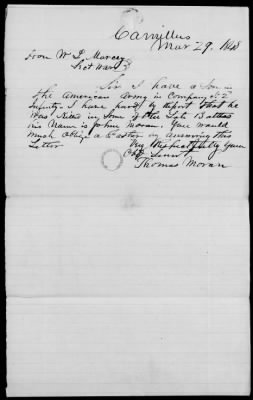 Camillus
Mar 29, 1848
Hon W. L. Marcey
Sect War
Sir I have a Son in
the American Army in Company
Infenty. I have heard by Report that he
was Kiled in some of the Late Battles
his Name is Johny Moran. You would
much oblige a Father by answering this
Letter
Very Respectfully Your
Obt. Servt
Thomas Moran